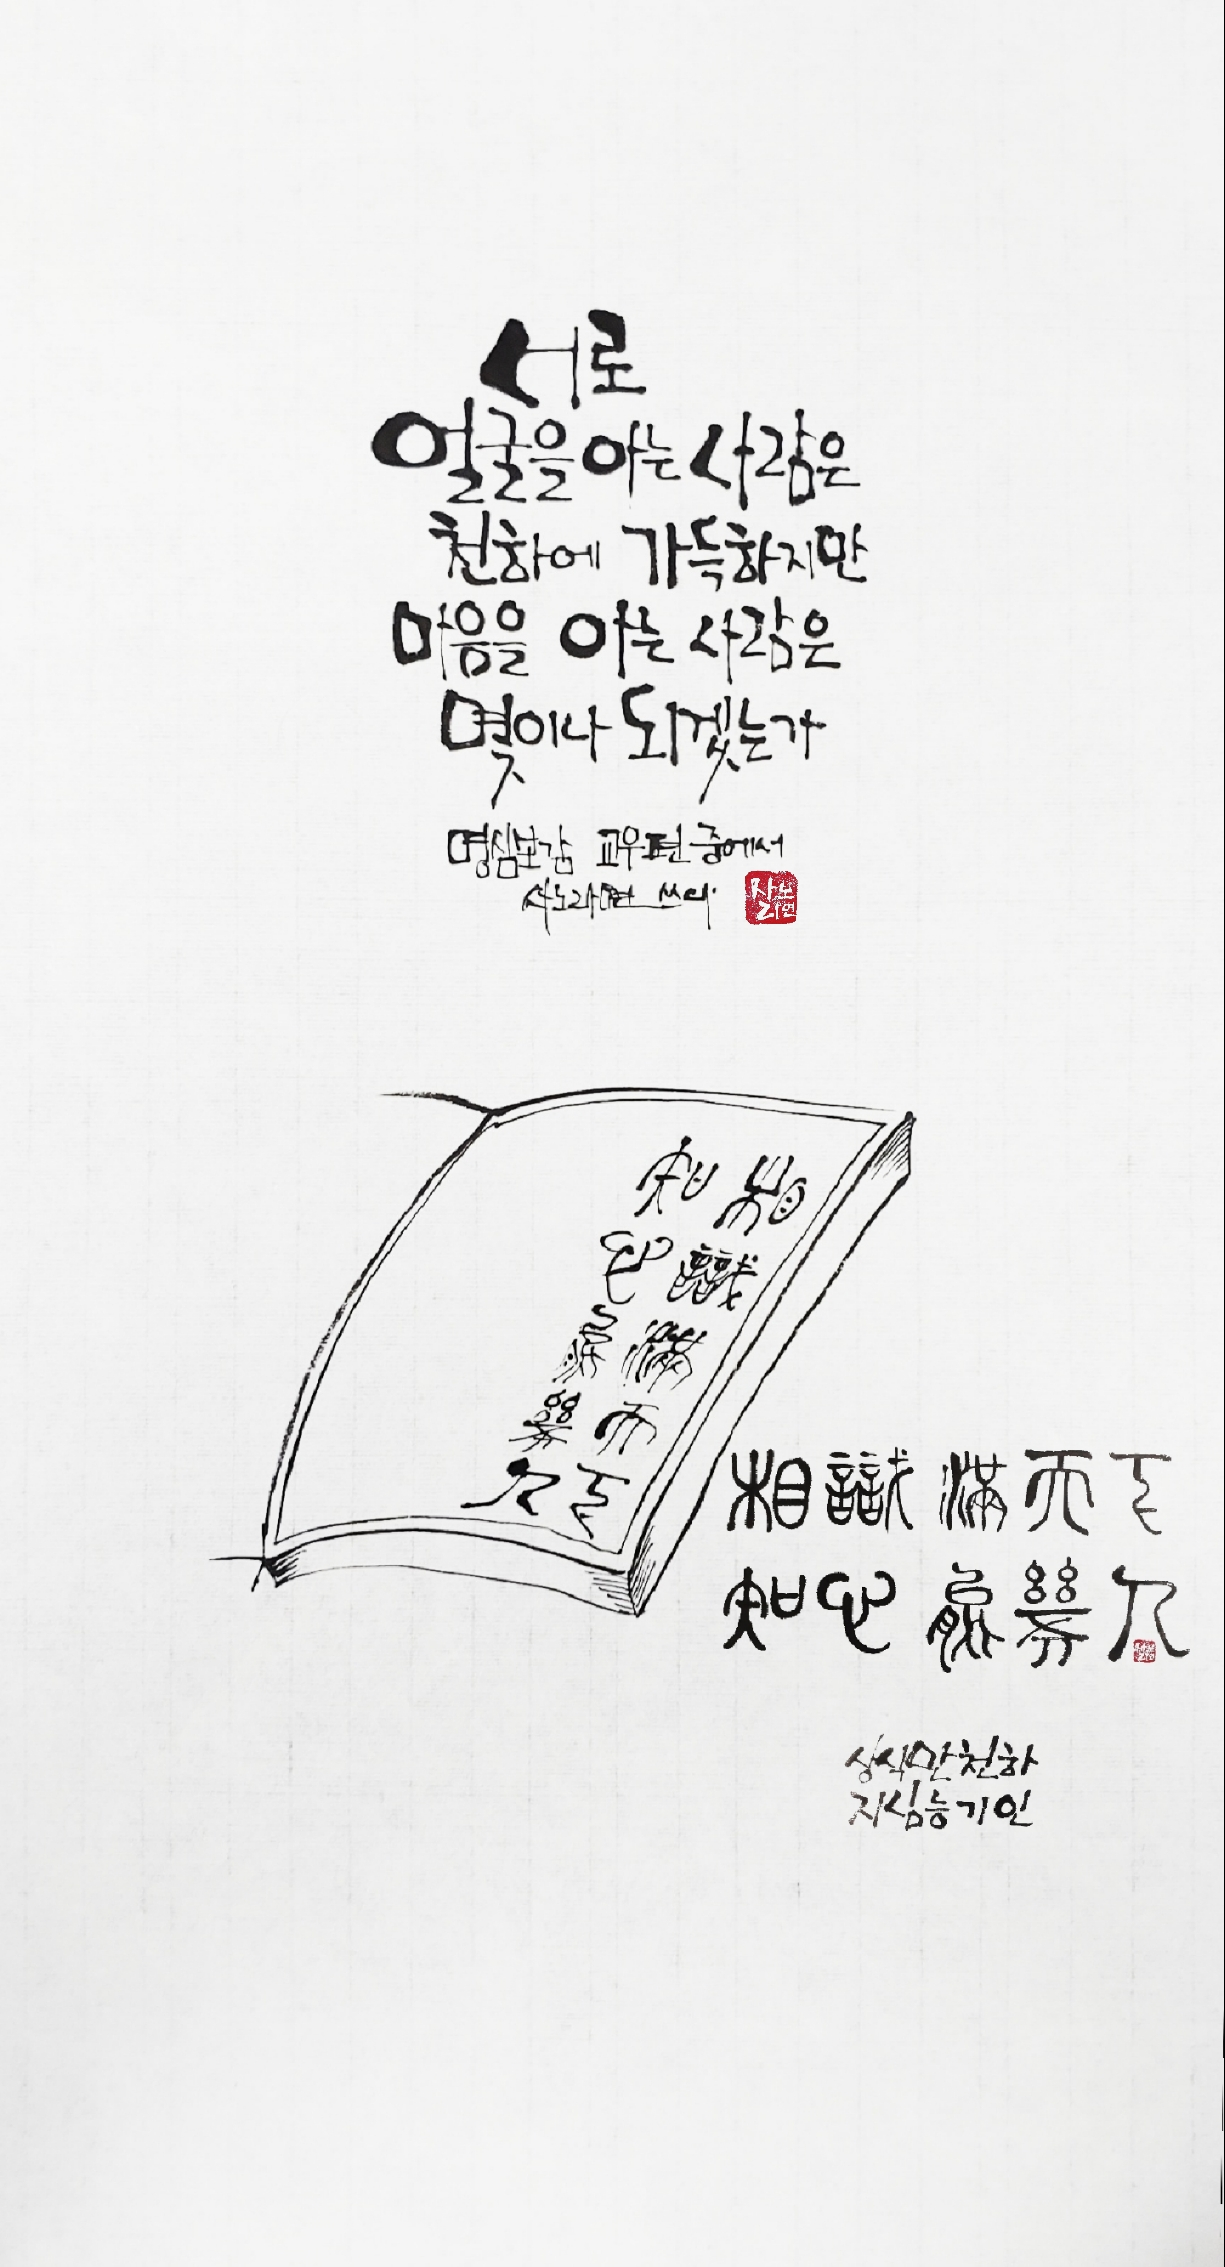 서로
얼굴을 아는 사람은
천하에 가득하지만
마음을 아는 사람은
몇이나 되겠는가
명심보감 교우편 중에서
쓰다.
相識滿天下
知心能幾人
相識滿天下
知心能幾人
상식만천하
지심능기인